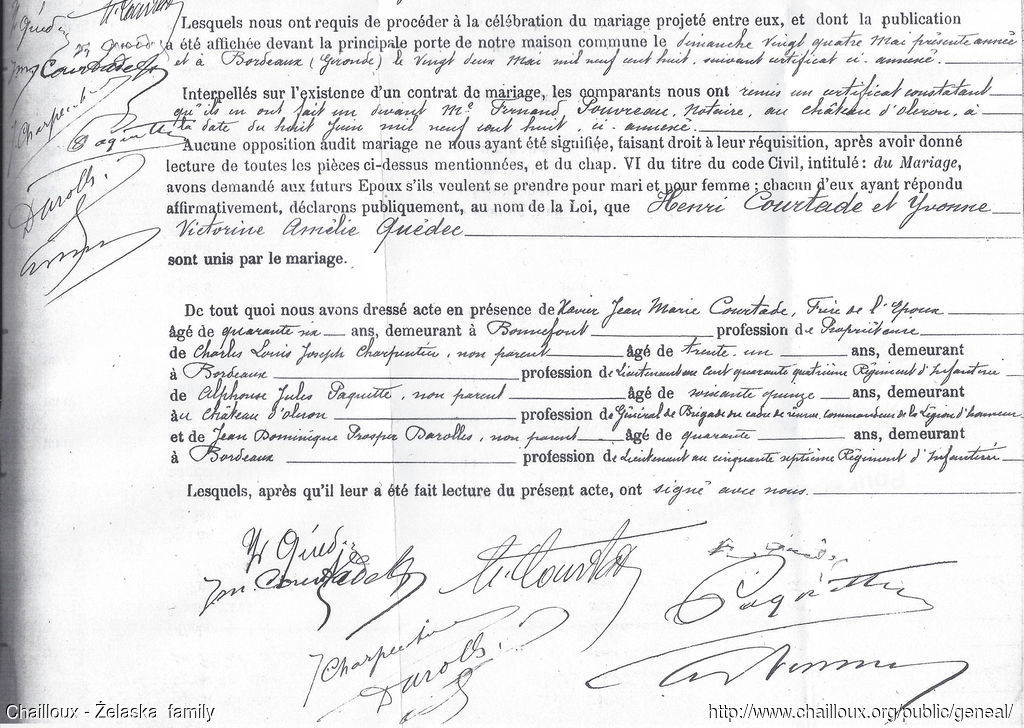 Lesquels nous ont requis de procéder à la célébration du mariage projeté entre eux, et dont la publication
a été affichée devant la principale porte de notre maison commune le dimanche vingt quatre Mai présente année
et à Bordeaux (Gironde) le vingt deux Mai mil neuf cent huit, suivant certificat ci-annexé.
Interpellés sur l'existence d'un contrat de mariage, les comparants nous ont remis un certificat constatant
qu'ils en ont fait un devant Me Fernand Notaire, au château d'oleron, à
la date du huit Juin mil neuf cent huit, ci-annexé.
Aucune opposition audit mariage ne nous ayant été signifiée, faisant droit à leur réquisition, après avoir donné
lecture de toutes les pièces ci-dessus mentionnées, et du chap. VI du titre du code Civil, intitulé : du Mariage,
avons demandé aux futurs Epoux s'ils veulent se prendre pour mari et pour femme ; chacun d'eux ayant répondu
affirmativement, déclarons publiquement, au nom de la Loi, que Henri Courtade et Yvonne
Victorine Amélie Quédec
sont unis par le mariage.
De tout quoi nous avons dressé acte en présence de Xavier Jean Marie Courtade, Frère de l'Epoux
âgé de quarante six ans, demeurant à Bonnefont profession de Propriétaire
de Charles Louis Joseph Charpentier, non parent âgé de trente-un ans, demeurant
à Bordeaux profession de Lieutenant au Cent quarante quatrième Régiment d'Infanterie
de Alphonse Jules Paquette, non parent âgé de soixante quinze ans, demeurant
au château d'oleron profession de Général de Brigade du cadre de réserve, Commandeur de la Légion d'honneur
et de Jean Dominique Prosper Darolles, non parent âgé de quarante ans, demeurant
à Bordeaux profession de Lieutenant au cinquante septième Régiment d'Infanterie
Lesquels, après qu'il leur a été fait lecture du présent acte, ont signé avec nous.
Y Quédec
Courtade
H. Courtade
Paquette
Charpentier
Darolles
Chailloux - Želaska family
http://www.chailloux.org/public/geneal/